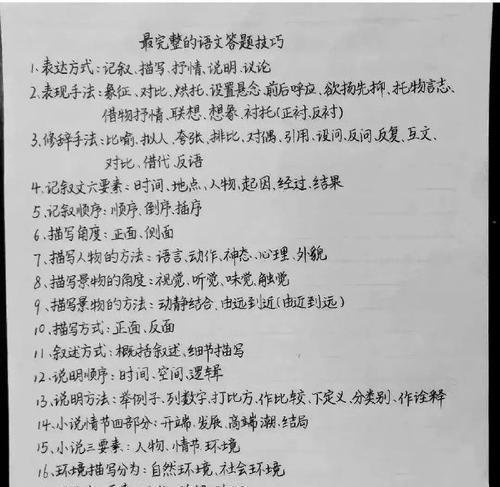 最完整的语文答题技巧
1、表达方式：记叙、描写、抒情、说明、议论
2、表现手法：象征、对比、烘托、设置悬念、前后呼应、欲扬先抑、托物言志、
借物抒情、联想、想象、衬托(正衬、反衬)
3、修辞手法：比喻、拟人、夸张、排比、对偶、引用、设问、反问、反复、互文、
对比、借代、反语
4、记叙文六要素：时间、地点、人物、起因、经过、结果
5、记叙顺序：顺序、倒序、插序
6、描写角度：正面、侧面
7、描写人物的方法：语言、动作、神态、心理、外貌
8、描写景物的角度：视觉、听觉、味觉、触觉
9、描写景物的方法：动静结合、由远到近(由近到远)
10、描写方式：正面、反面
11、叙述方式：概括叙述、细节描写
12、说明顺序：时间、空间、逻辑
13、说明方法：举例子、列数字、打比方、作比较、下定义、分类别、作诠释
14、小说情节四部分：开端、发展、高端潮、结局
15、小说三要素：人物、情节、环境
16、环境描写分为：自然环境、社会环境